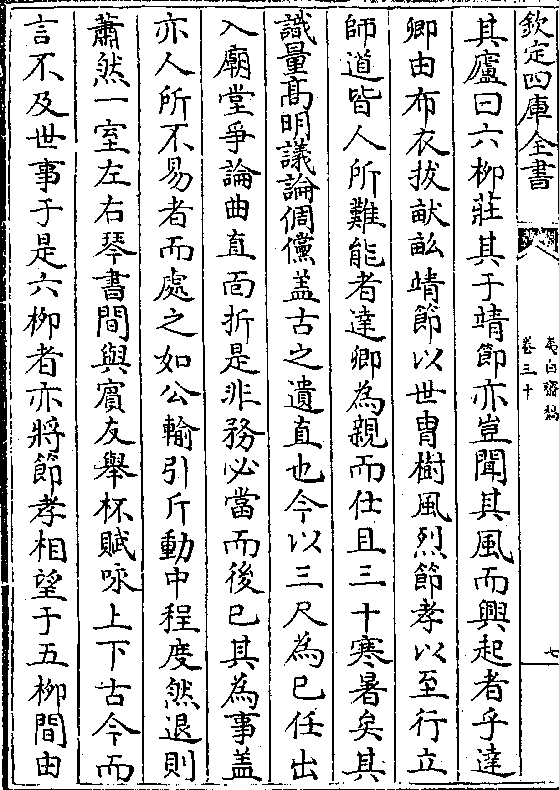 欽定四庫全書
夷白齋稿
卷三十
七
其廬曰六柳莊其于靖節亦豈聞其風而興起者乎達
卿由布衣拔猷畝靖節以世胄樹風烈節孝以至行立
師道皆人所難能者達卿為親而仕且三十寒暑矣其
識量髙明議論倜儻盖古之遺直也今以三尺為已任出
入廟堂爭論曲直面折是非務必當而後已其為事盖
亦人所不易者而處之如公輸引斤動中程度然退則
蕭然一室左右琴書間與賓友舉杯賦咏上下古今而
言不及世事于是六柳者亦將節孝相望于五柳間由